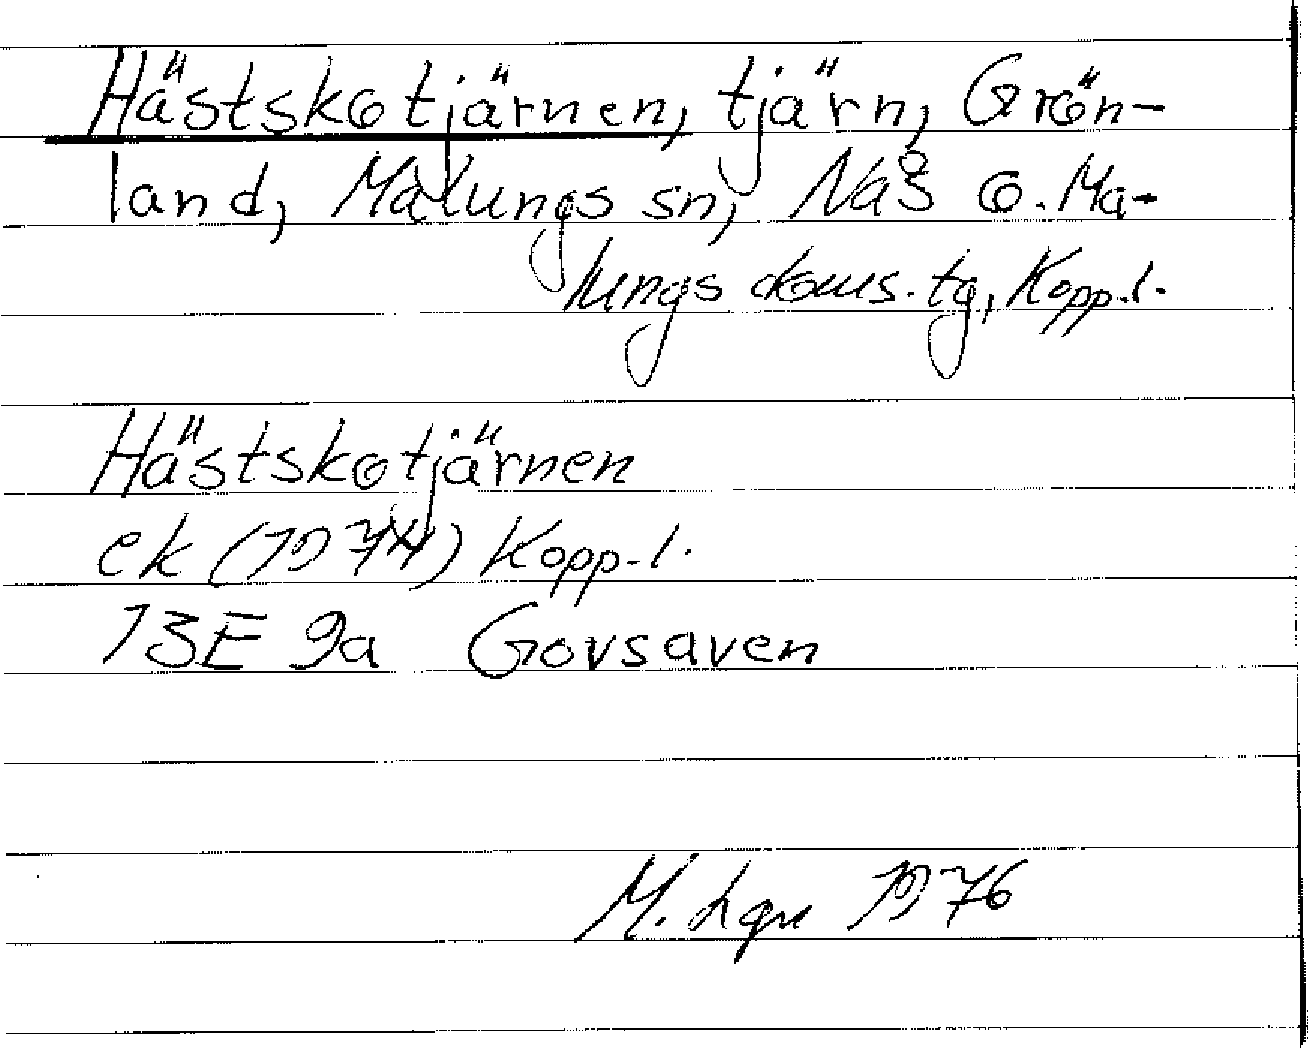 Hästskotjärnen, tjärn, Grön-
land, Malungs sn, Nås o. Ma-
lungs doms. tg, Kopp. l.
Hästskotjärnen
ek (1974) Kopp. l.
13E 9a Govsaven
M. Lgn 1976